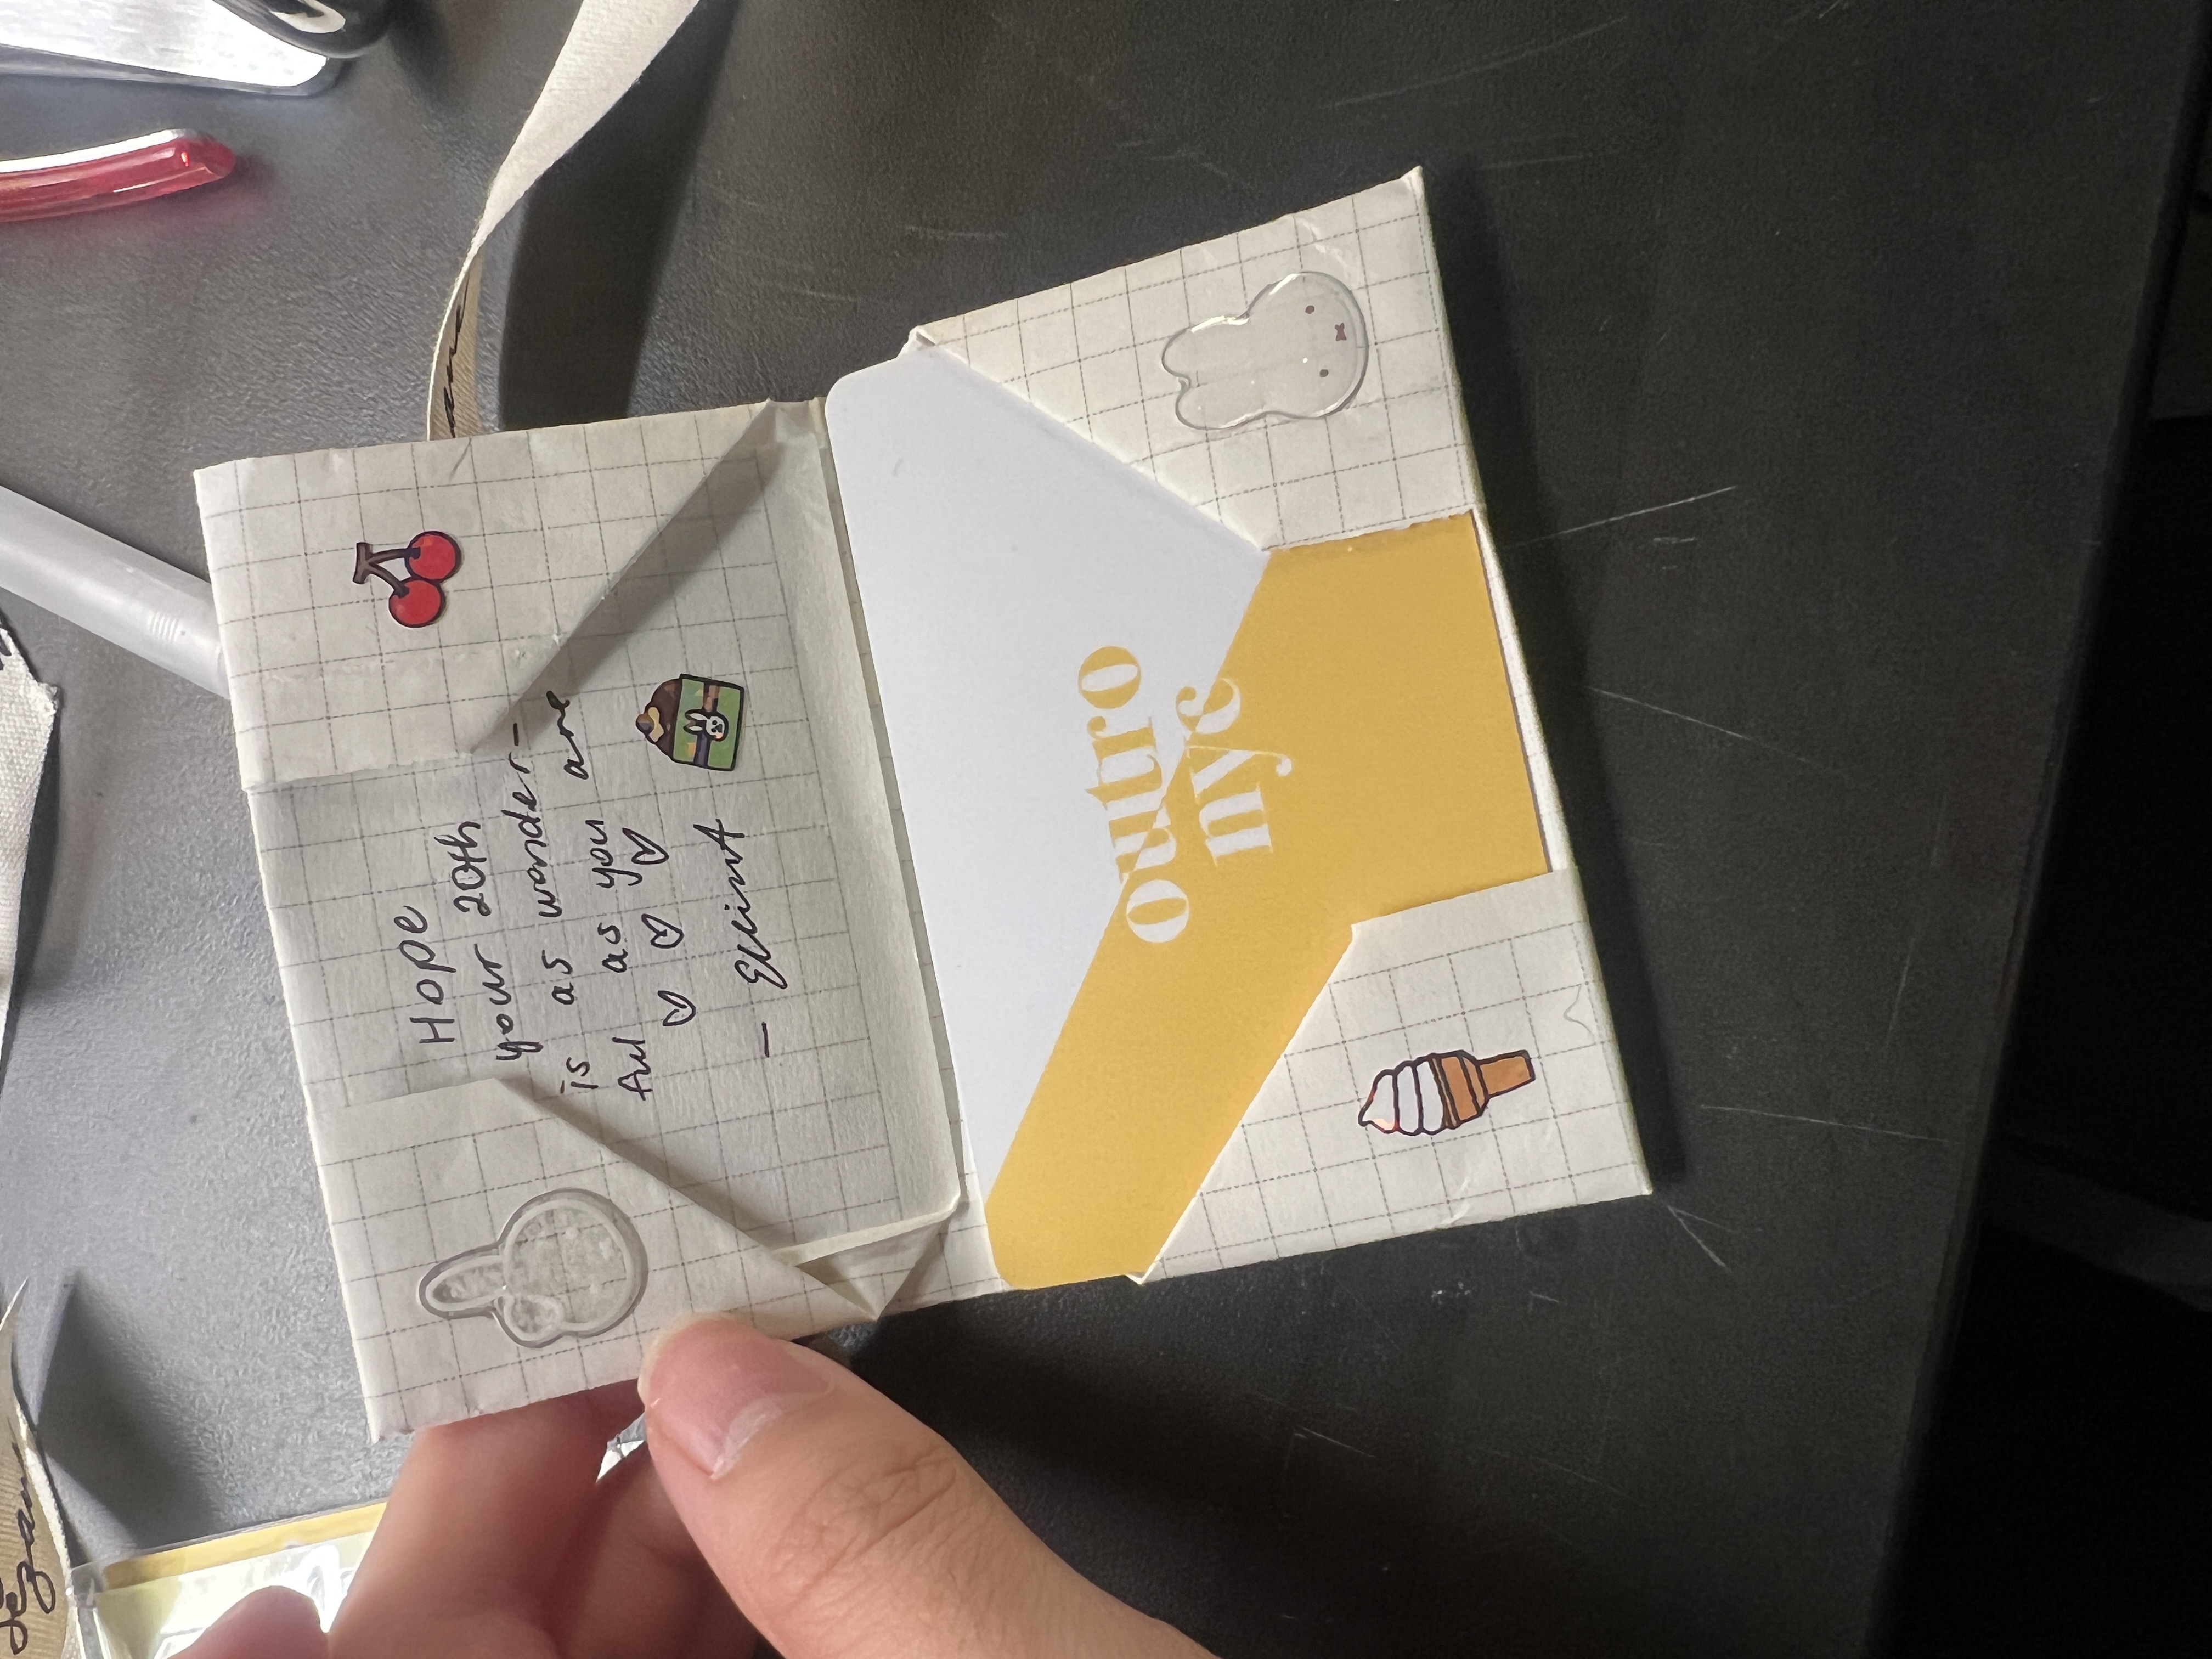 Hope
your 20th
is as wonder-
ful as you are
♡ ♡ ♡
outro
nyc